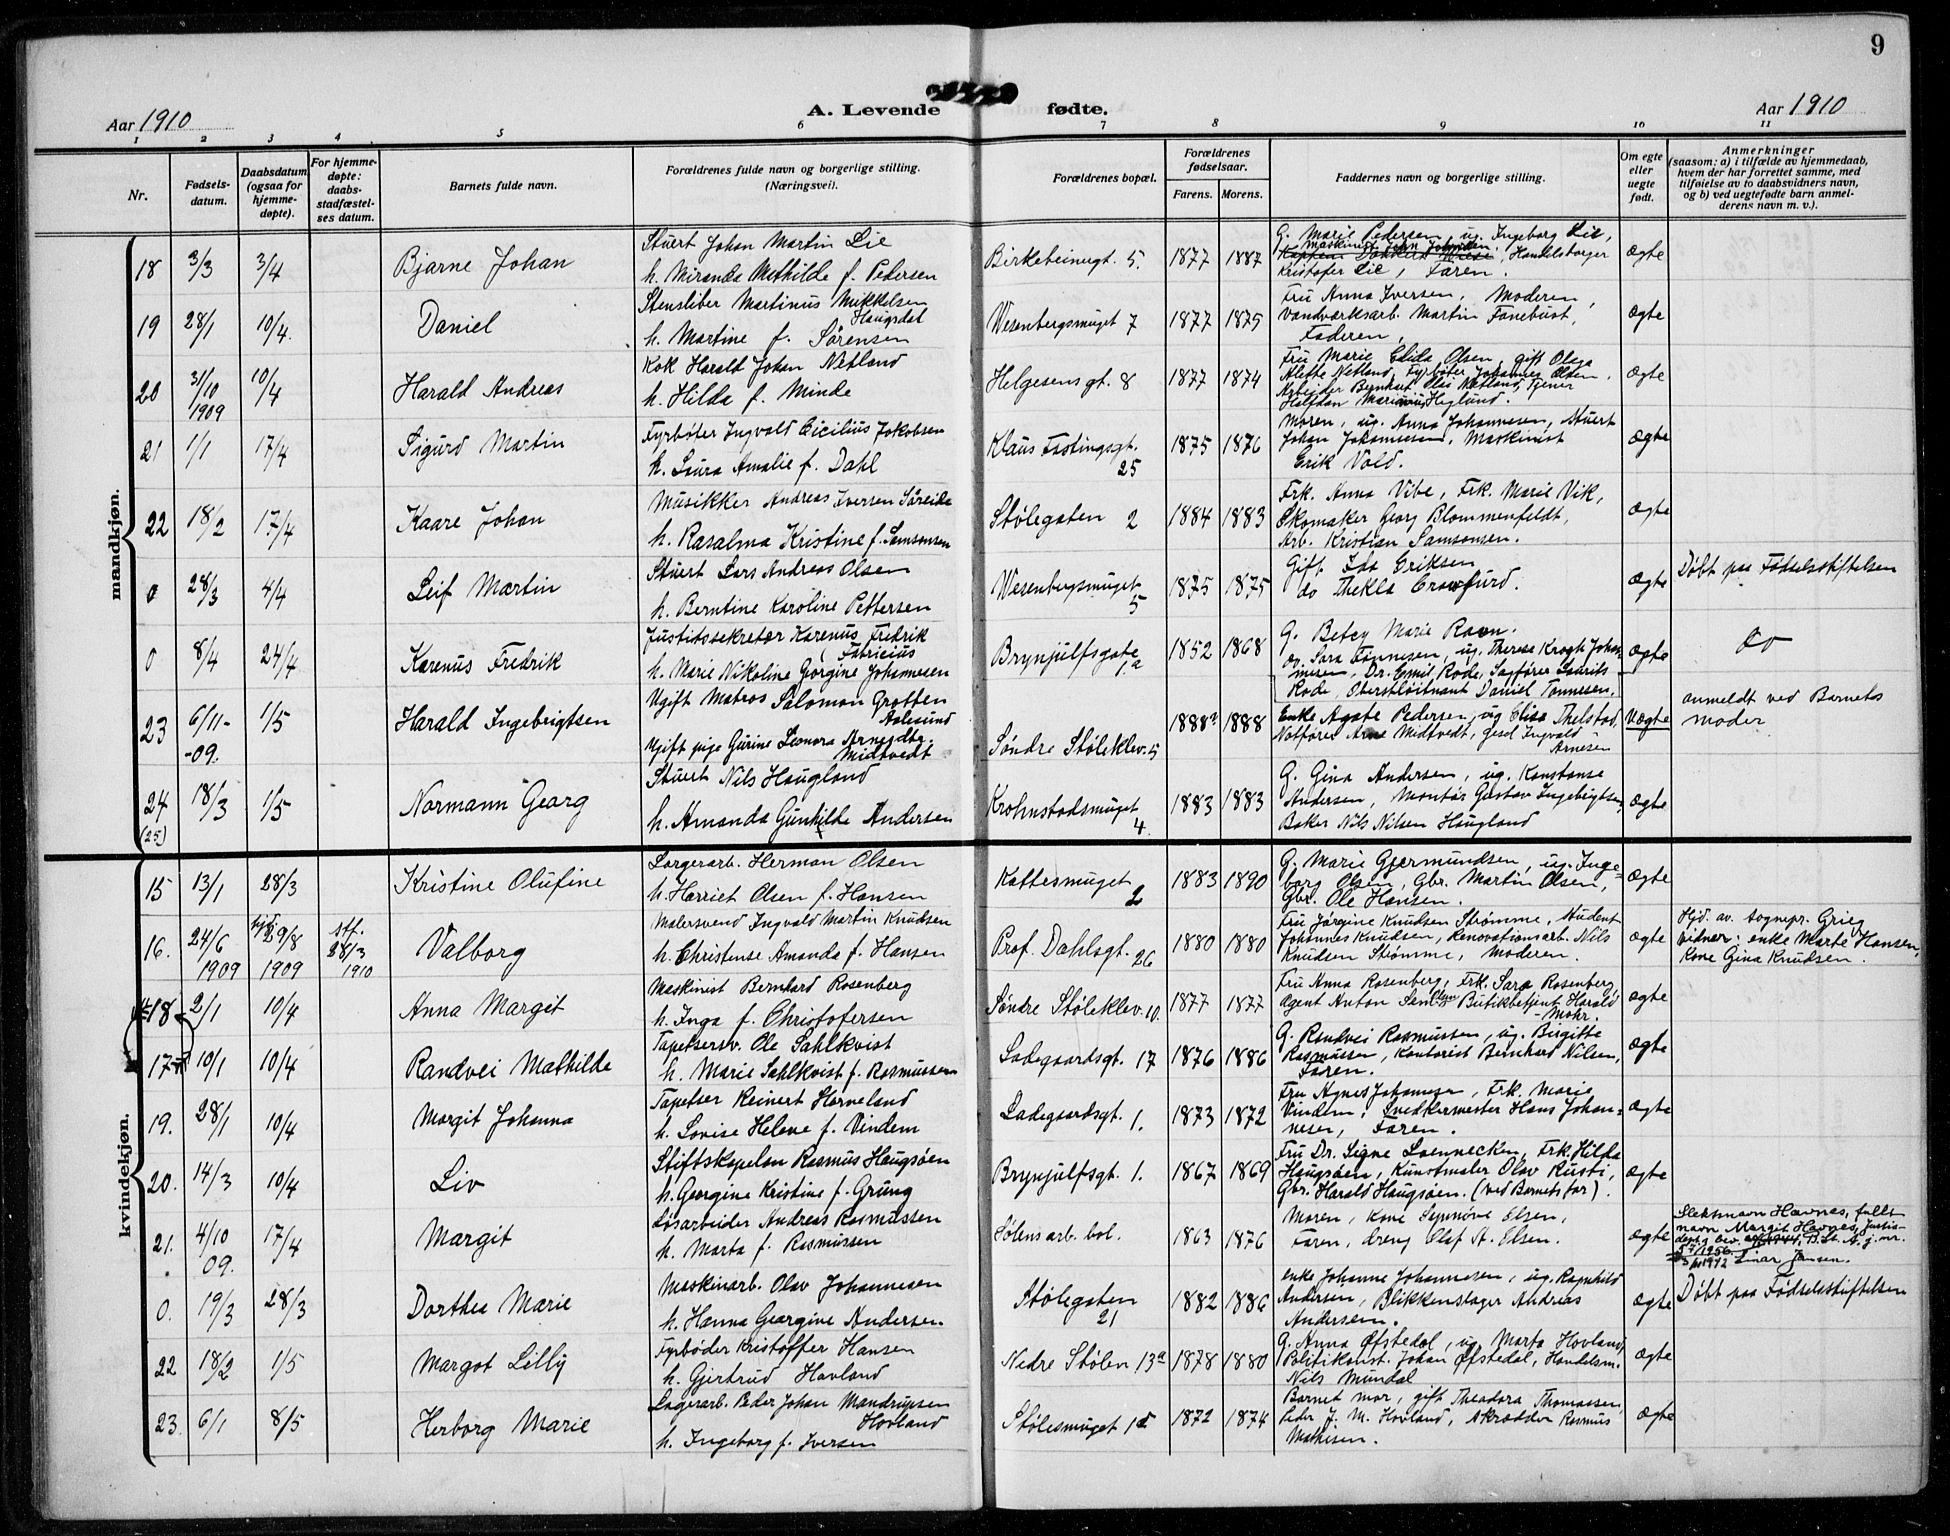 9
Aar 1910
A. Levende fødte.
Aar 1910
1 2 3 4 5 6 7 8 9 10 11
Nr.
Fødsels-
datum.
Daabsdatum
(ogsaa for
hjemme-
døpte).
For hjemme-
døpte:
daabs-
stadfæstel-
ses datum.
Barnets fulde navn.
Forældrenes fulde navn og borgerlige stilling.
(Næringsvei).
Forældrenes bopæl.
Forældrenes
fødselsaar.
Farens. Morens.
Faddernes navn og borgerlige stilling.
Om egte
eller
uegte
født.
Anmerkninger
(saasom: a) i tilfælde av hjemmedaab,
hvem der har forrettet samme, med
tilføielse av to daabsvidners navn,
og b) ved uegtefødte barn anmel-
derens navn m. v.).
mandkjøn.
18 3/3 3/4 Bjarne Johan
Stuert Johan Martin Lie
h. Miranda Mathilde f. Pedersen
Birkebeinergt. 5. 1877 1887
G. Marie Pedersen, ug. Ingeborg Lie,
Maskinist John Johnsen, Handelsborger
Kristofer Lie, Faren.
ægte
19 28/1 10/4. Daniel
Stensliber Martinus Mikkelsen
Haugsdal
h. Martine f. Sørensen
Wesenbergsmuget 7 1877 1875
Fru Anna Iversen, Moderen,
Vandværksarb. Martin Fanebust,
Faderen,
ægte
20 31/10 1909 10/4 Harald Andreas
Kok Harald Johan Netland
h. Hilda f. Minde
Helgesensgt. 8 1877 1874
Fru Marie Elida Olsen, gift Olaga
Alette Netland, Fyrbøter Johannes Olsen.
Arbeider Bernhart Elai Netland, Tjener
Halfdan Marinius Heglund.
ægte
21 1/1 17/4 Sigurd Martin
Fyrbøter Ingvald Cicilius Jakobsen
h. Laura Amalie f. Dahl
Klaus Fastingsgt.
25 1875 1876
Moren, ug. Anna Johannesen, Stuert
Johan Johannesen, Maskinist
Erik Vold.
ægte
22 18/2 17/4 Kaare Johan
Musikker Andreas Iversen Søreide
h. Rasalma Kristine f. Samsonsen
Stølegaten 2 1884 1883
Frk. Anna Vibe, Frk. Marie Vik,
Skomaker Georg Blommenfeldt,
Arb. Kristian Samsonsen.
ægte
0 28/3 4/4 Leif Martin
Stuert Lars Andreas Olsen
h. Berntine Karoline Pettersen
Wesenbergsmuget
5 1875 1875
Gift Ida Eriksen
do Thekla Crawfurd.
ægte
Døbt paa Fødselsstiftelsen
0 8/4 24/4 Karenus Fredrik
Justitssekretær Karenus Fredrik
Fabricius
h. Marie Nikoline Georgine Johannesen
Brynjulfsgate
1a 1852 1868
G. Betey Marie Ravn.
ov. Sara Tønnesen, ug. Therese Krogh Johan-
nesen, Dr. Emil Rode, Sagfører Laurits
Rode, Oberstløitnant Daniel Tønnesen.
ægte
do
23 6/11-
-09. 1/5 Harald Ingebrigtsen
Ugift Matros Salomon Grotten
Aalesund
Ugift pige Gurine Leonora Arnejdtr.
Midtvedt
Søndre Støleklev. 5 1888? 1888
Enke Agate Pedersen, ug Elisa Thelstad,
Notfører Arne Midtvedt, Gesel Ingvald
Arnesen
Uægte
anmeldt ved Barnets
moder
24
(25) 18/3 1/5 Normann Georg
Stuert Nils Haugland
h. Amanda Gunhilde Andersen
Krohnstadsmuget
4. 1883 1883
G. Gina Andersen, ug. Konstanse
Andersen, Montør Gustav Ingebrigtsen,
Baker Nils Nilsen Haugland
ægte
kvindekjøn.
15 13/1 28/3 Kristine Olufine
Lagerarb. Herman Olsen
h. Harriet Olsen f. Hansen
Kattesmuget
2 1883 1890
G. Marie Gjermundsen, ug. Inge-
borg Olsen, Gbr. Martin Olsen,
Gbr. Ole Hansen.
ægte
16. 24/6 1909 hjd. 29/8 1909 stf. 28/3 1910 Valborg
Malersvend Ingvald Martin Knudsen
h. Christense Amanda f. Hansen
Prof. Dahlsgt. 26 1880 1880
Fru Jørgine Knudsen Strømme, Student
Johannes Knudsen, Renovationsarb. Nils
Knudsen Strømme, Moderen.
ægte
Hjd. av sognepr. Grieg
Vidner: enke Marte Hansen,
Kone Gina Knudsen.
18 2/1 10/4 Anna Margit
Maskinist Bernhard Rosenberg
h. Inga f. Christofersen
Søndre Støleklev. 10. 1877 1877
Fru Anna Rosenberg, Frk. Sara Rosenberg,
Agent Anton Samuelsen Butikbetjent Harald
Mohr.
ægte
17 10/1 10/4 Randvei Mathilde
Tapetsersv. Ole Sahlkvist
h. Marie Sahlkvist f. Rasmussen
Ladegaardsgt. 17 1876 1886
G. Randvei Rasmussen, ug. Birgitte
Rasmussen, Kontorist Bernhard Nilsen,
Faren.
ægte
19. 28/1 10/4 Margit Johanna
Tapetser Reinert Horneland
h. Lovise Helene f. Vindem
Ladegaardsgt. 1. 1873 1872
Fru Agnes Johannesen, Frk. Marie
Vindem, Snedkermester Hans Johan-
nesen, Faren.
ægte
20. 14/3 10/4 Liv
Stiftskapelan Rasmus Haugsøen
h. Georgine Kristine f. Grung
Brynjulfsgt. 1. 1867 1869
Fru Dr. Signe Loennecken, Frk. Hilda
Haugsøen, Kunstmaler Olav Rusti,
Gbr. Harald Haugsøen. (ved Barnets far).
ægte
21. 4/10 09. 17/4 Margit
Løsarbeider Andreas Rasmussen
h. Marta f. Rasmussen
Sølens arb. bol. 1863 1876
Moren, Kone Synnøve Olsen,
Faren, dreng Olaf St. Olsen.
ægte
Slektsnavn Havnes, fullt
navn Margit Havnes, Justis-
Einar Jansen.
0. 19/3 28/3 Dorthea Marie
Maskinarb. Olav Johannesen
h. Hanna Georgine Andersen.
Stølegaten
21 1882 1886
Enke Johanne Johannesen, ug. Ragnhild
Andersen, Blikkenslager Andreas
Andersen.
ægte
Døbt paa Fødselsstiftelsen
22 18/2 1/5 Margot Lilly
Fyrbøder Kristoffer Hansen
h. Gjertrud Havland
Nedre Stølen 13a 1878 1880
G. Anna Øfstedal, ug. Marta Hovland,
Politikonst. Johan Øfstedal, Handelsm.
Nils Mundal
ægte
23. 6/1 8/5 Herborg Marie
Lagerarb. Peder Johan Mandrupsen
Hovland
h. Ingeborg f. Iversen
Stølesmuget 1d 1872 1874
Barnet mor, gift Theadora Thomassen,
Peder J. M. Hovland, Skrædder Rasmus
Mathisen.
ægte